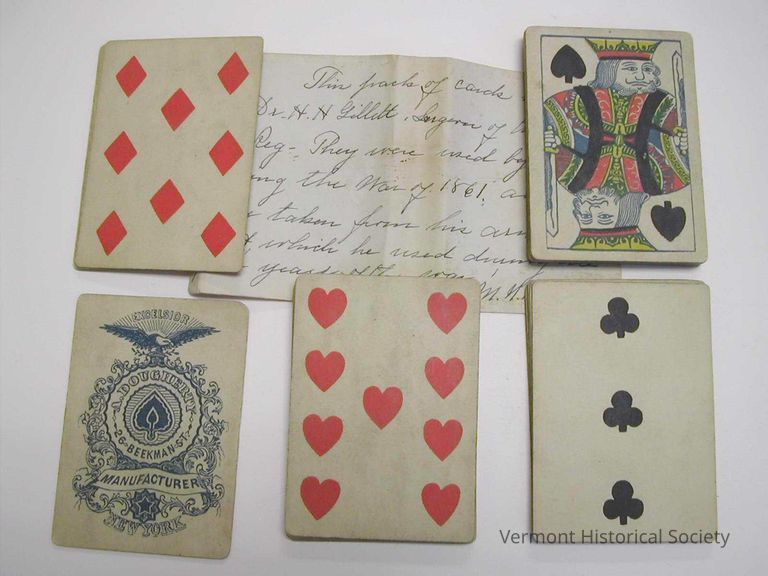 This pack of cards
Dr. H. H Gillett, Surgeon of
Reg - They were used by
the War of 1861,
taken from his
which he used during
years of the war
M. H.
EXCELSIOR
A. DOUGHERTY
26 BEEKMAN ST.
MANUFACTURER
NEW YORK
Vermont Historical Society